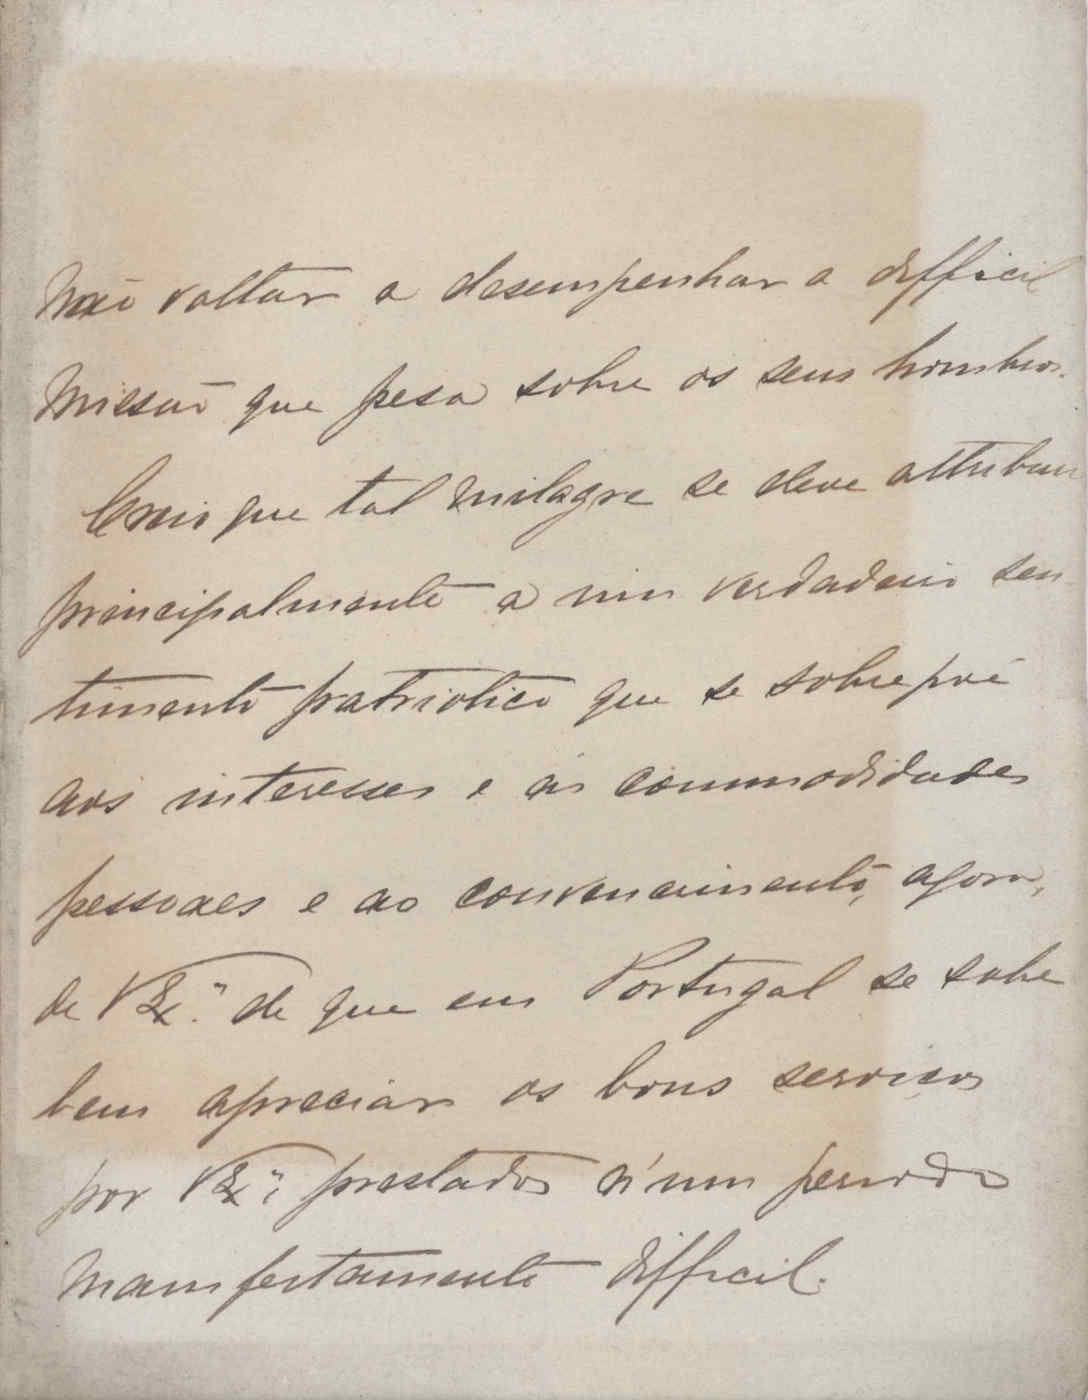 não voltar a desempenhar a difficil
missão que pesa sobre os seus hombros.
Creio que tal milagre se deve attribuir
principalmente a um verdadeiro sen-
timento patriotico que se sobrepõe
aos interesses e ás commodidades
pessoaes e ao convencimento, agora,
de VEx.ª de que em Portugal se sabe
bem apreciar os bons serviços
por VEx.ª prestados n'um periodo
manifestamente difficil.